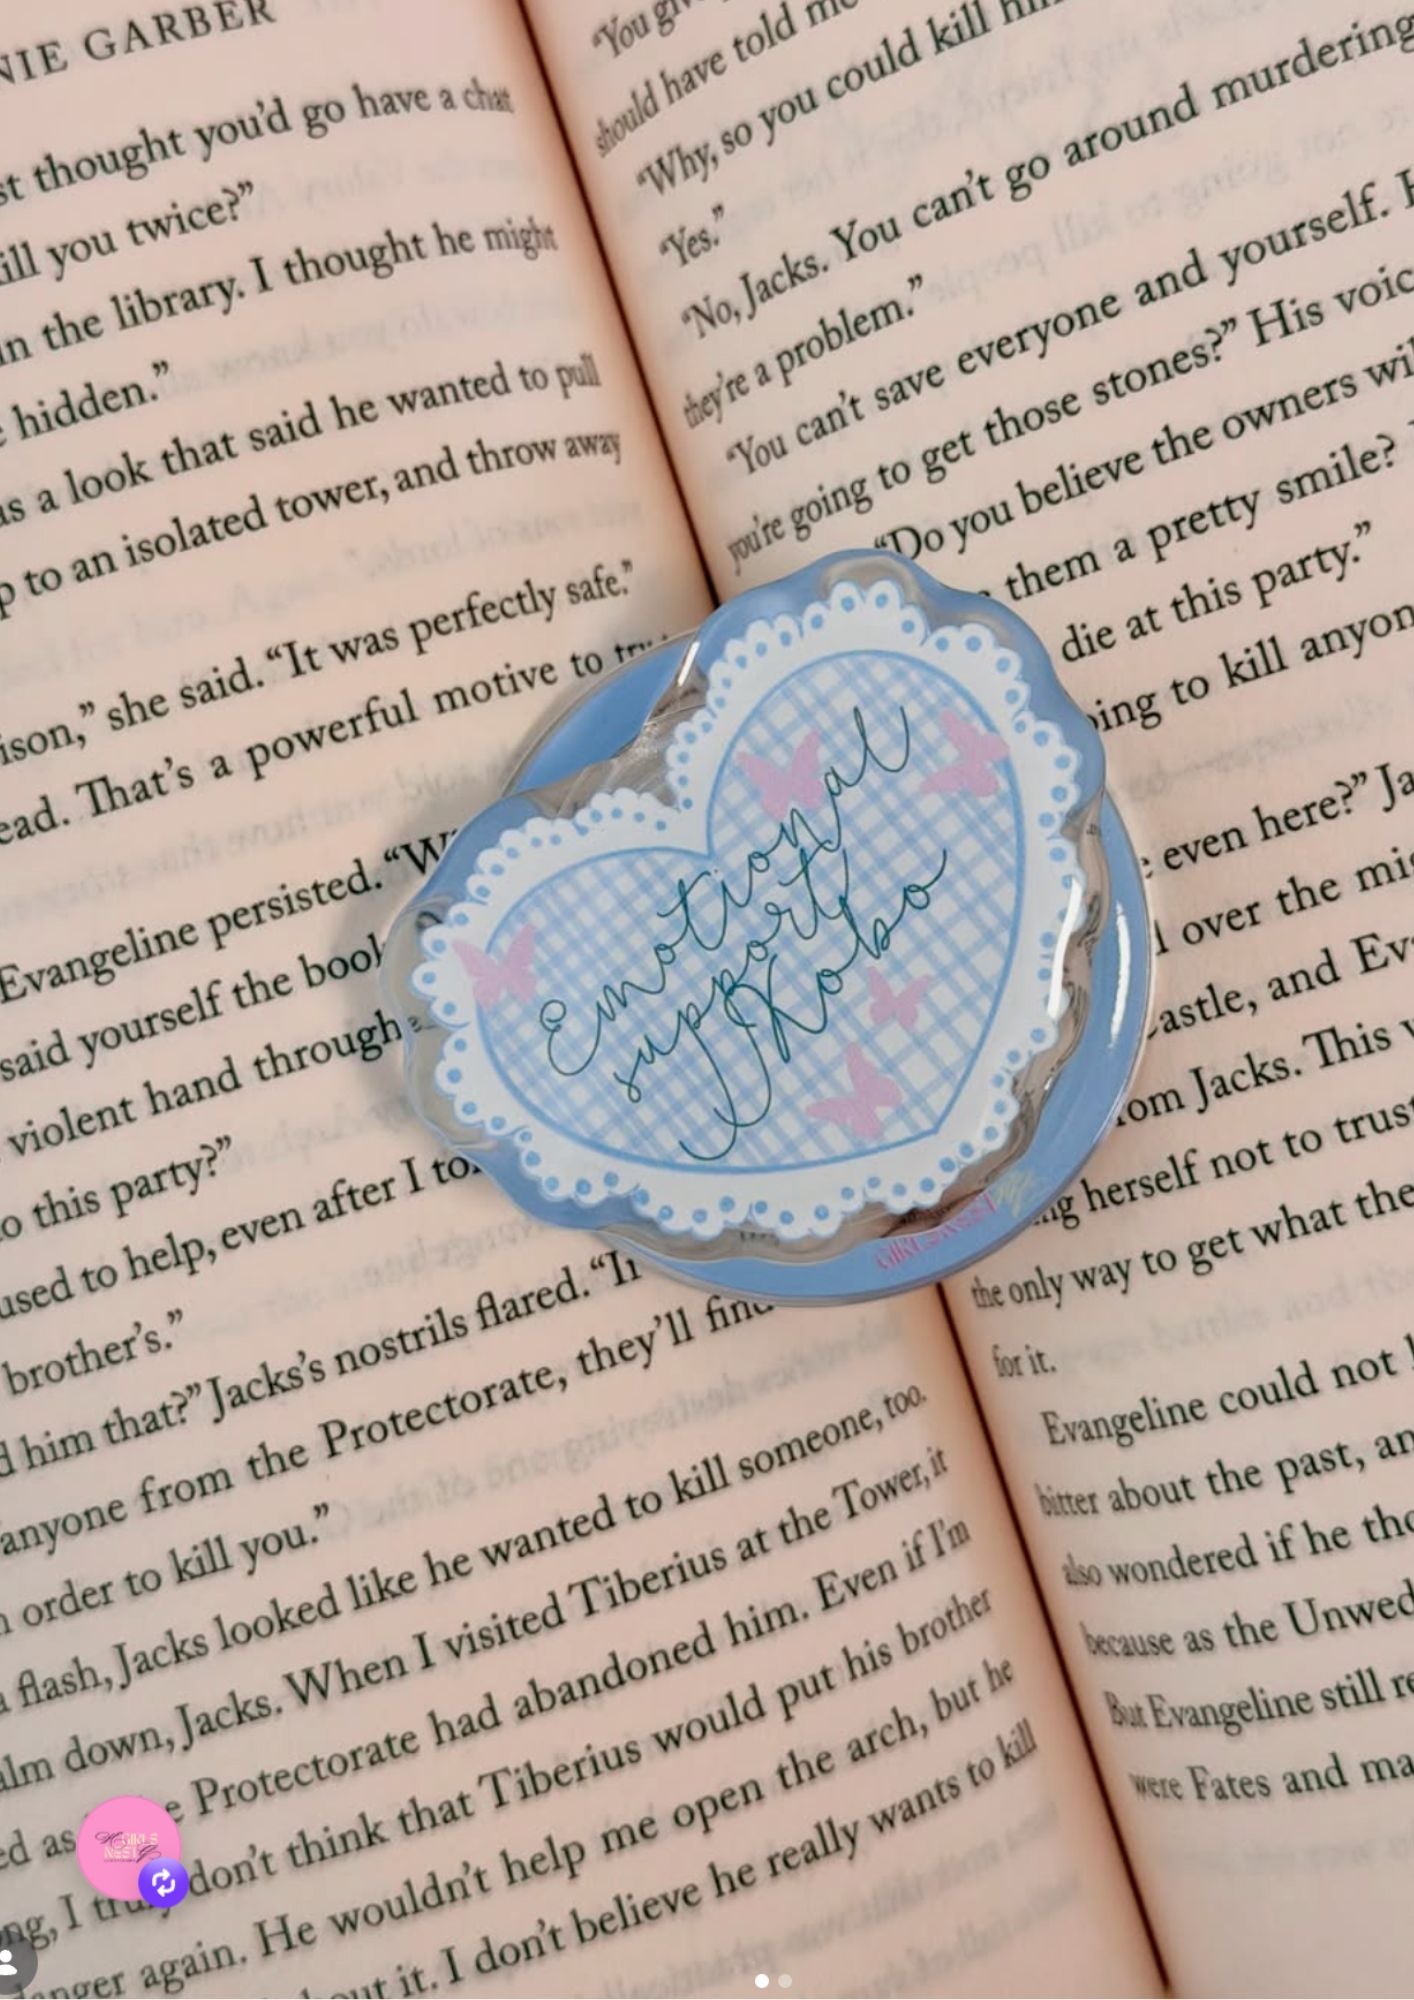 NIE GARBER
st thought you'd go have a chat
ill you twice?”
in the library. I thought he might
e hidden.”
as a look that said he wanted to pull
p to an isolated tower, and throw away
“It was perfectly safe.”
ison,” she said.
ead. That's a powerful motive to try
Evangeline persisted. “W
said yourself the book
violent hand through
o this party?”
used to help, even after I to
brother's.”
d him that?” Jacks's nostrils flared. “It
anyone from the Protectorate, they'll find
n order to kill you.”
a flash, Jacks looked like he wanted to kill someone, too.
alm down, Jacks. When I visited Tiberius at the Tower, it
ed as
e Protectorate had abandoned him. Even if I'm
ng, I truly don't think that Tiberius would put his brother
danger again. He wouldn't help me open the arch, but he
bout it. I don't believe he really wants to kill
“You give
should have told me
“Why, so you could kill him
“Yes.”
“No, Jacks. You can't go around murdering
they're a problem.”
“You can't save everyone and yourself. H
you're going to get those stones?” His voic
“Do you believe the owners wil
them a pretty smile?
die at this party.”
oing to kill anyon
e even here?” Ja
l over the mis
Castle, and Ev
from Jacks. This w
ng herself not to trust
the only way to get what the
for it.
Evangeline could not
bitter about the past, an
also wondered if he tho
because as the Unwed
But Evangeline still re
were Fates and ma
Emotional
support
Kobo
GIRLS NEST
GIRLS
NEST